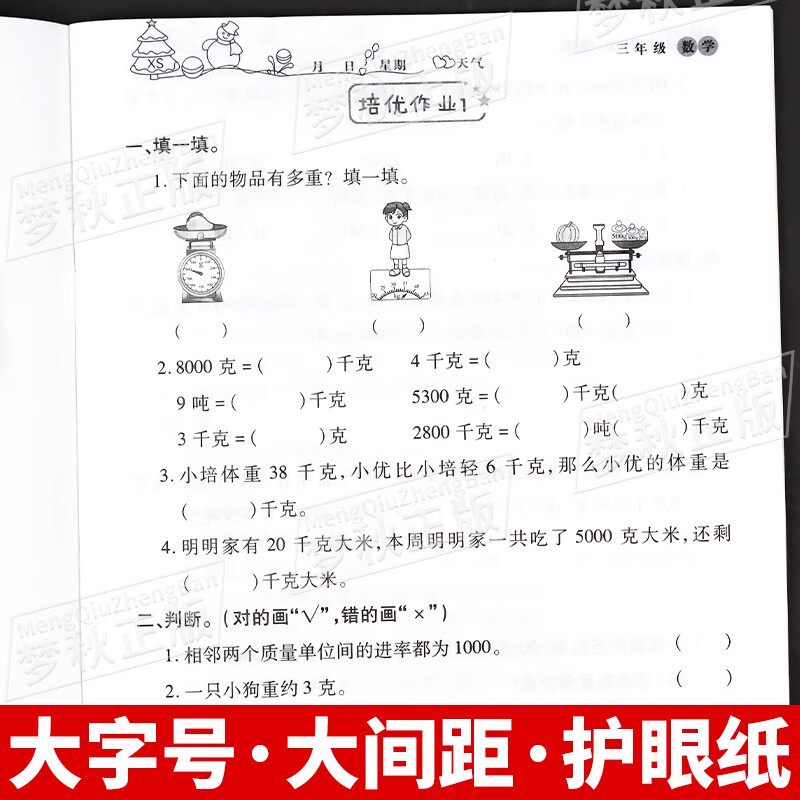 XS
月 日 星期 天气
三年级 数学
培优作业1
一、填一填。
1.下面的物品有多重？填一填。
500g
kg
( ) ( ) ( )
2.8000 克=( )千克 4 千克=( )克
9 吨=( )千克 5300 克=( )千克( )克
3 千克=( )克 2800 千克=( )吨( )千克
3.小培体重 38 千克,小优比小培轻 6 千克,那么小优的体重是
( )千克。
4.明明家有 20 千克大米,本周明明家一共吃了 5000 克大米,还剩
( )千克大米。
二、判断。(对的画“√”,错的画“×”)
1.相邻两个质量单位间的进率都为 1000。 ( )
2.一只小狗重约 3 克。 ( )
大字号·大间距·护眼纸
MengQiuZhengBan
梦秋正版